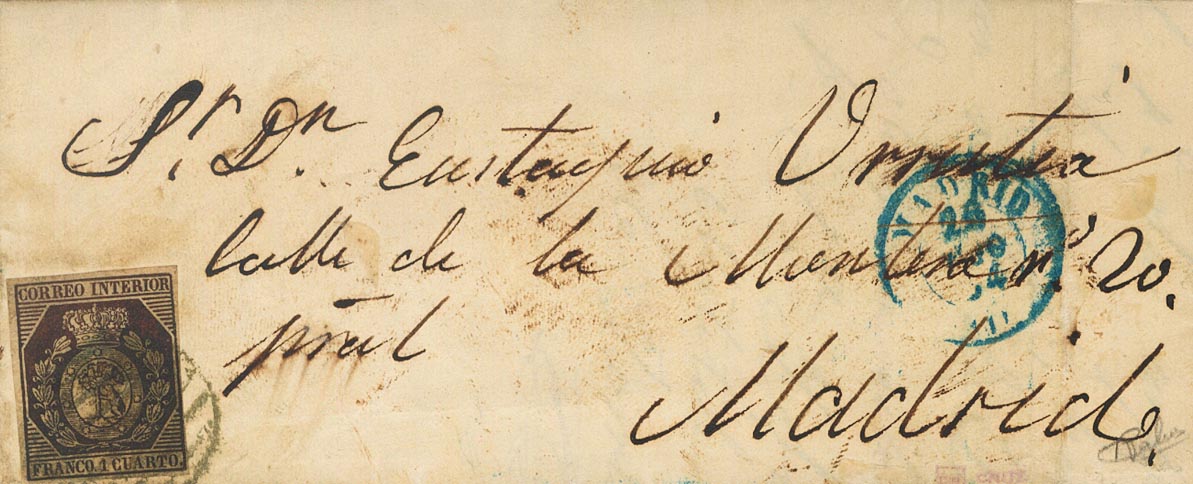 Sr. Dn. Eustaquio Urrutia
Calle de la Montera nº. 20.
pral
Madrid.
CORREO INTERIOR
FRANCO. 1 CUARTO.
MADRID